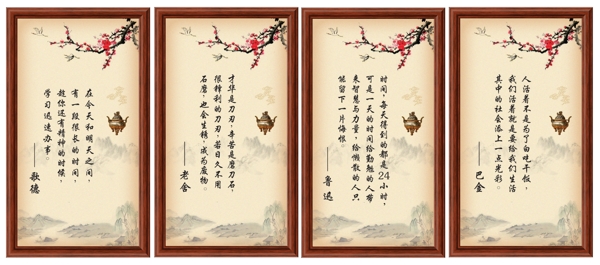 在今天和明天之间，
有一段很长的时间，
趁你还有精神的时候，
学习迅速办事。
——歌德
才华是刀刃，辛苦是磨刀石，
很锋利的刀刃，若日久不用
石磨，也会生锈，成为废物。
——老舍
时间，每天得到的都是24小时，
可是一天的时间给勤勉的人带
来智慧与力量，给懒散的人只
能留下一片悔恨
——鲁迅
人活着不是为了白吃干饭，
我们活着就是要给我们生活
其中的社会添上一点光彩。
——巴金